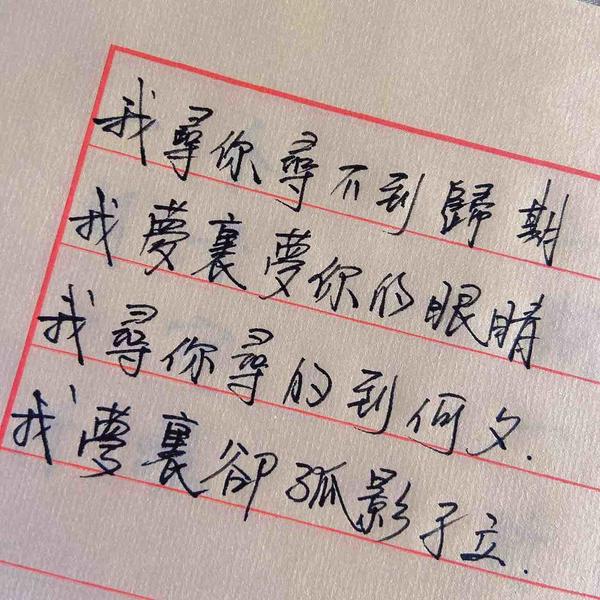 我尋你尋不到歸期
我夢裏夢你的眼睛
我尋你尋的到何夕.
我夢裏卻孤影孑立.